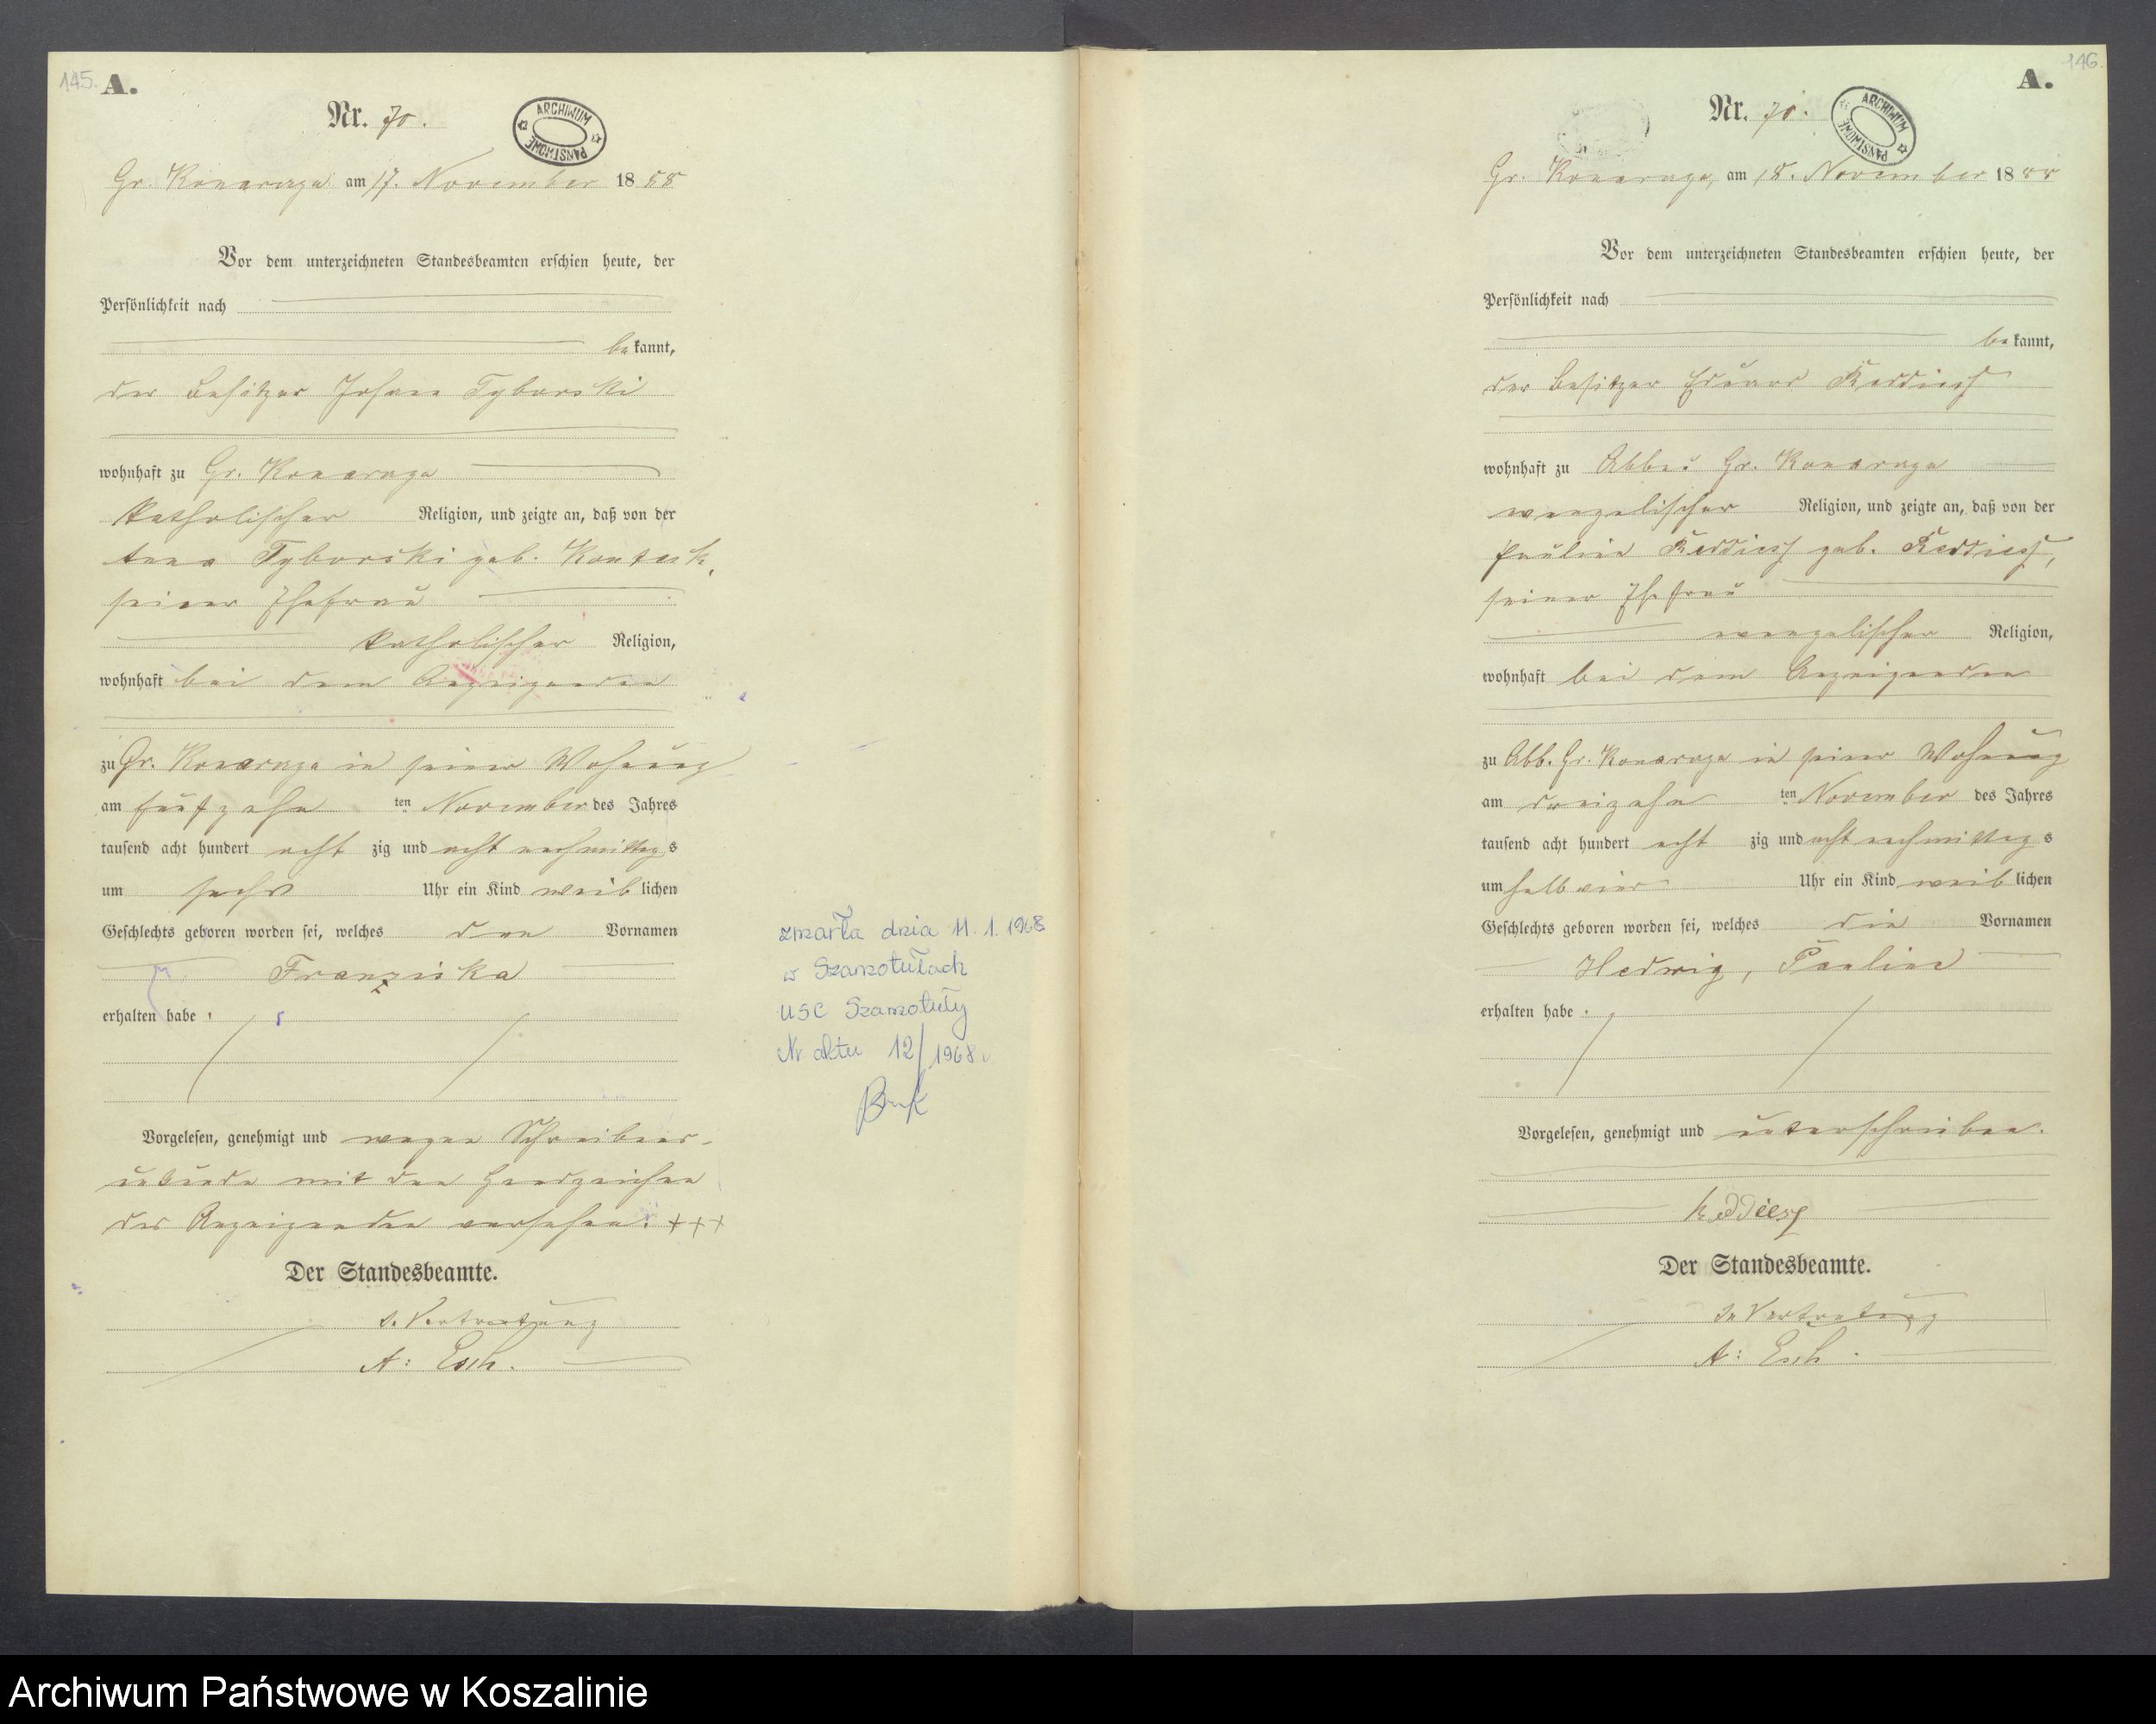 145.
A.
Nr. 70.
ARCHIWUM PAŃSTWOWE
Gr. Konarzyn am 17. November 1888
Vor dem unterzeichneten Standesbeamten erschien heute, der
Persönlichkeit nach
bekannt,
der Besitzer Johann Tyborski
wohnhaft zu Gr. Konarzyn
katholischer Religion, und zeigte an, daß von der
Anna Tyborski geb.
seiner Ehefrau
katholischer Religion,
wohnhaft bei dem Anzeigenden
zu Gr. Konarzyn in seiner Wohnung
am fünfzehn ten November des Jahres
tausend acht hundert acht zig und acht nachmittags
um sechs Uhr ein Kind weiblichen
Geschlechts geboren worden sei, welches den Vornamen
Franziska
erhalten habe.
Vorgelesen, genehmigt und wegen Schreibens-
unkunde mit den Handzeichen
des Anzeigenden versehen. +++
Der Standesbeamte.
In Vertretung
A: Esch.
zmarła dnia 11. 1. 1968
w Szamotułach
USC Szamotuły
Nr aktu 12/1968
146.
A.
Nr. 70.
ARCHIWUM PAŃSTWOWE
Gr. Konarzyn, am 18. November 1888
Vor dem unterzeichneten Standesbeamten erschien heute, der
Persönlichkeit nach
bekannt,
der Besitzer Eduard Keddiesz
wohnhaft zu Abbau Gr. Konarzyn
evangelischer Religion, und zeigte an, daß von der
Paulina Keddiesz geb. Keddiesz,
seiner Ehefrau
evangelischer Religion,
wohnhaft bei dem Anzeigenden
zu Abb. Gr. Konarzyn in seiner Wohnung
am dreizehn ten November des Jahres
tausend acht hundert acht zig und acht nachmittags
um halb vier Uhr ein Kind weiblichen
Geschlechts geboren worden sei, welches die Vornamen
Hedwig, Pauline
erhalten habe.
Vorgelesen, genehmigt und unterschrieben.
Keddiesz
Der Standesbeamte.
In Vertretung
A: Esch.
Archiwum Państwowe w Koszalinie